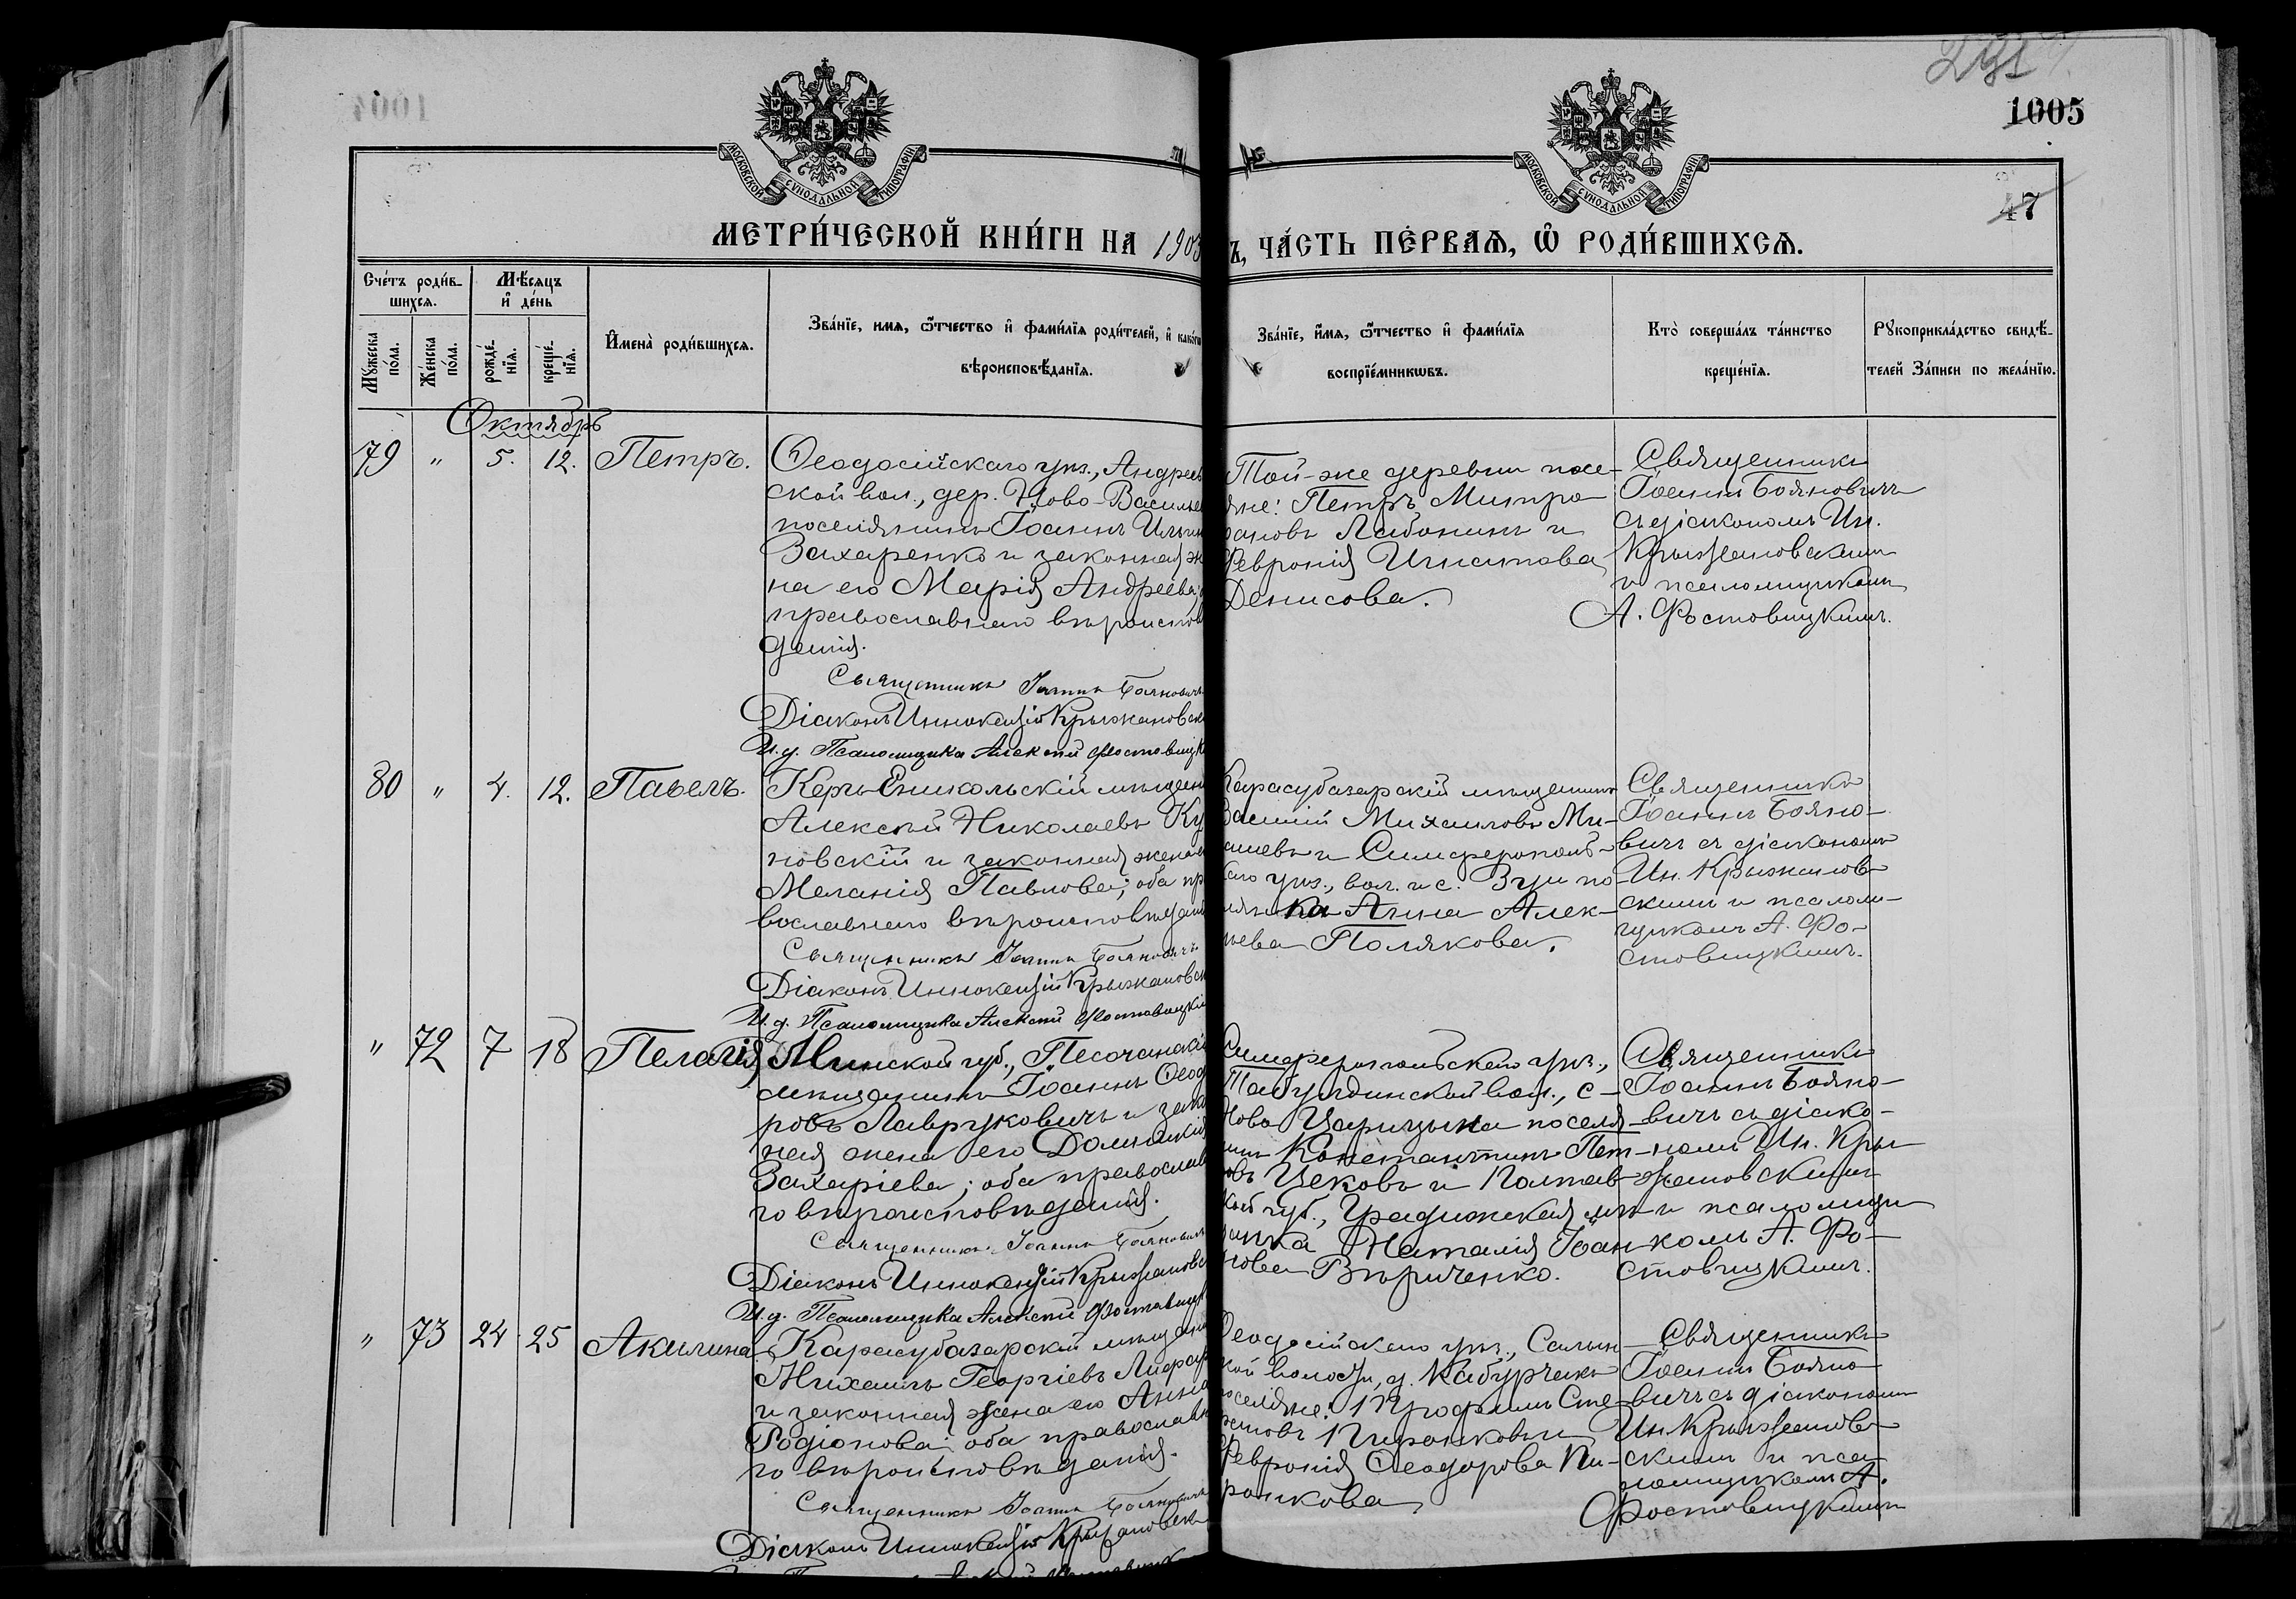 1005
47
МОСКОВСКОЙ СѴНОДАЛЬНОЙ ТИПОГРАФІИ
МОСКОВСКОЙ СѴНОДАЛЬНОЙ ТИПОГРАФІИ
МЕТРИ́ЧЕСКОЙ КНИ́ГИ НА 1903
Ъ, ЧА́СТЬ ПЕ́РВАѦ, Ѿ РОДИ́ВШИХСѦ.
Сче́тъ роди́в-
шихсѧ.
Мѣ́сѧцъ
и҆ де́нь
Мꙋ́жеска по́ла.
Же́нска по́ла.
рожде́-нїѧ.
креще́-нїѧ.
И҆мена̀ роди́вшихсѧ.
Зва́нїе, имѧ, ѻ҆́тчество и҆ фами́лїѧ роди́телей, и҆ како́гѡ
вѣроисповѣ́данїѧ.
Зва́нїе, и҆́мѧ, ѻ҆́тчество и҆ фами́лїѧ
воспрїе́мникѡвъ.
Кто̀ соверша́лъ та́инство
креще́нїѧ.
Рꙋкоприкла́дство свидѣ́-
телей За́писи по жела́нїю.
Октябрь
79 " 5. 12. Петръ.
Ѳеодосійскаго уѣз., Андреев
ской вол., дер. Ново-Василье
поселянинъ Іоаннъ Ильин
Захаренко и законная же
на его Марія Андреева;
православнаго вѣроиспов
данія.
Священникъ Іоаннъ Бояновичъ
Діаконъ Иннокентій Крыжановск
И.д. Псаломщика Алексій Фостовицк
Той-же деревни посе-
яне: Петръ Митро
ановъ Лабонинъ и
Февронія Игнатова
Денисова.
Священникъ
Іоаннъ Бояновичъ
съ діакономъ Ин.
Крыжановскимъ
и псаломщикомъ
А. Фостовицкимъ.
80 " 4. 12. Павелъ.
Керчь-Еникольскій мѣщани
Алексѣй Николаевъ Ку
новскій и законная жена е
Меланія Павлова; оба пр
вославнаго вѣроисповѣдані
Священникъ Іоаннъ Бояновичъ
Діаконъ Иннокентій Крыжановск
И.д. Псаломщика Алексій Фостовицкій
Карасубазарскій мѣщанинъ
Василій Михаиловъ Ми-
аиевъ и Симферополь-
каго уѣз., вол. и с. Зуи по
лянка Анна Алек-
ѣева Полякова.
Священникъ
Іоаннъ Бояно-
вичъ съ діакономъ
Ин. Крыжанов-
скимъ и псалом-
щикомъ А. Фо-
стовицкимъ.
" 72 7 18 Пелагія
Минской губ., Песочанскій
мѣщанинъ Іоаннъ Ѳеод
ровъ Лаврукевичъ и зако
ная жена его Домникія
Захаріева; оба православ
го вѣроисповѣданія.
Священникъ Іоаннъ Бояновичъ
Діаконъ Иннокентій Крыжановс
И.д. Псаломщика Алексій Фостовицк
Симферопольскаго уѣз.,
Табулдинской вол., с-
Ново Царицына поселя
инъ Константинъ Пет-
овъ Цековъ и Полтав
кой губ., Градижская мѣ
анка Наталія Іоан
нова Вѣриченко.
Священникъ
Іоаннъ Бояно-
вичъ съ діако-
номъ Ин. Кры
жановскимъ
и псаломщи
комъ А. Фо-
стовицкимъ.
" 73 24 25 Акилина
Карасубазарскій мѣщани
Михаилъ Георгіевъ Лифар
и законная жена его Анна
Родіонова; оба православн
го вѣроисповѣданія.
Священникъ Іоаннъ Бояновичъ
Діаконъ Иннокентій Крыжановск
Ѳеодосійскаго уѣз., Салын
кой волости, д. Кабурчакъ
оселяне: Трофимъ Сте-
ановъ Пиронковъ и
Февронія Ѳеодорова Пи-
ронкова
Священникъ
Іоаннъ Бояно-
вичъ съ діакономъ
Ин. Крыжанов-
скимъ и пса-
ломщикомъ А.
Фостовицкимъ